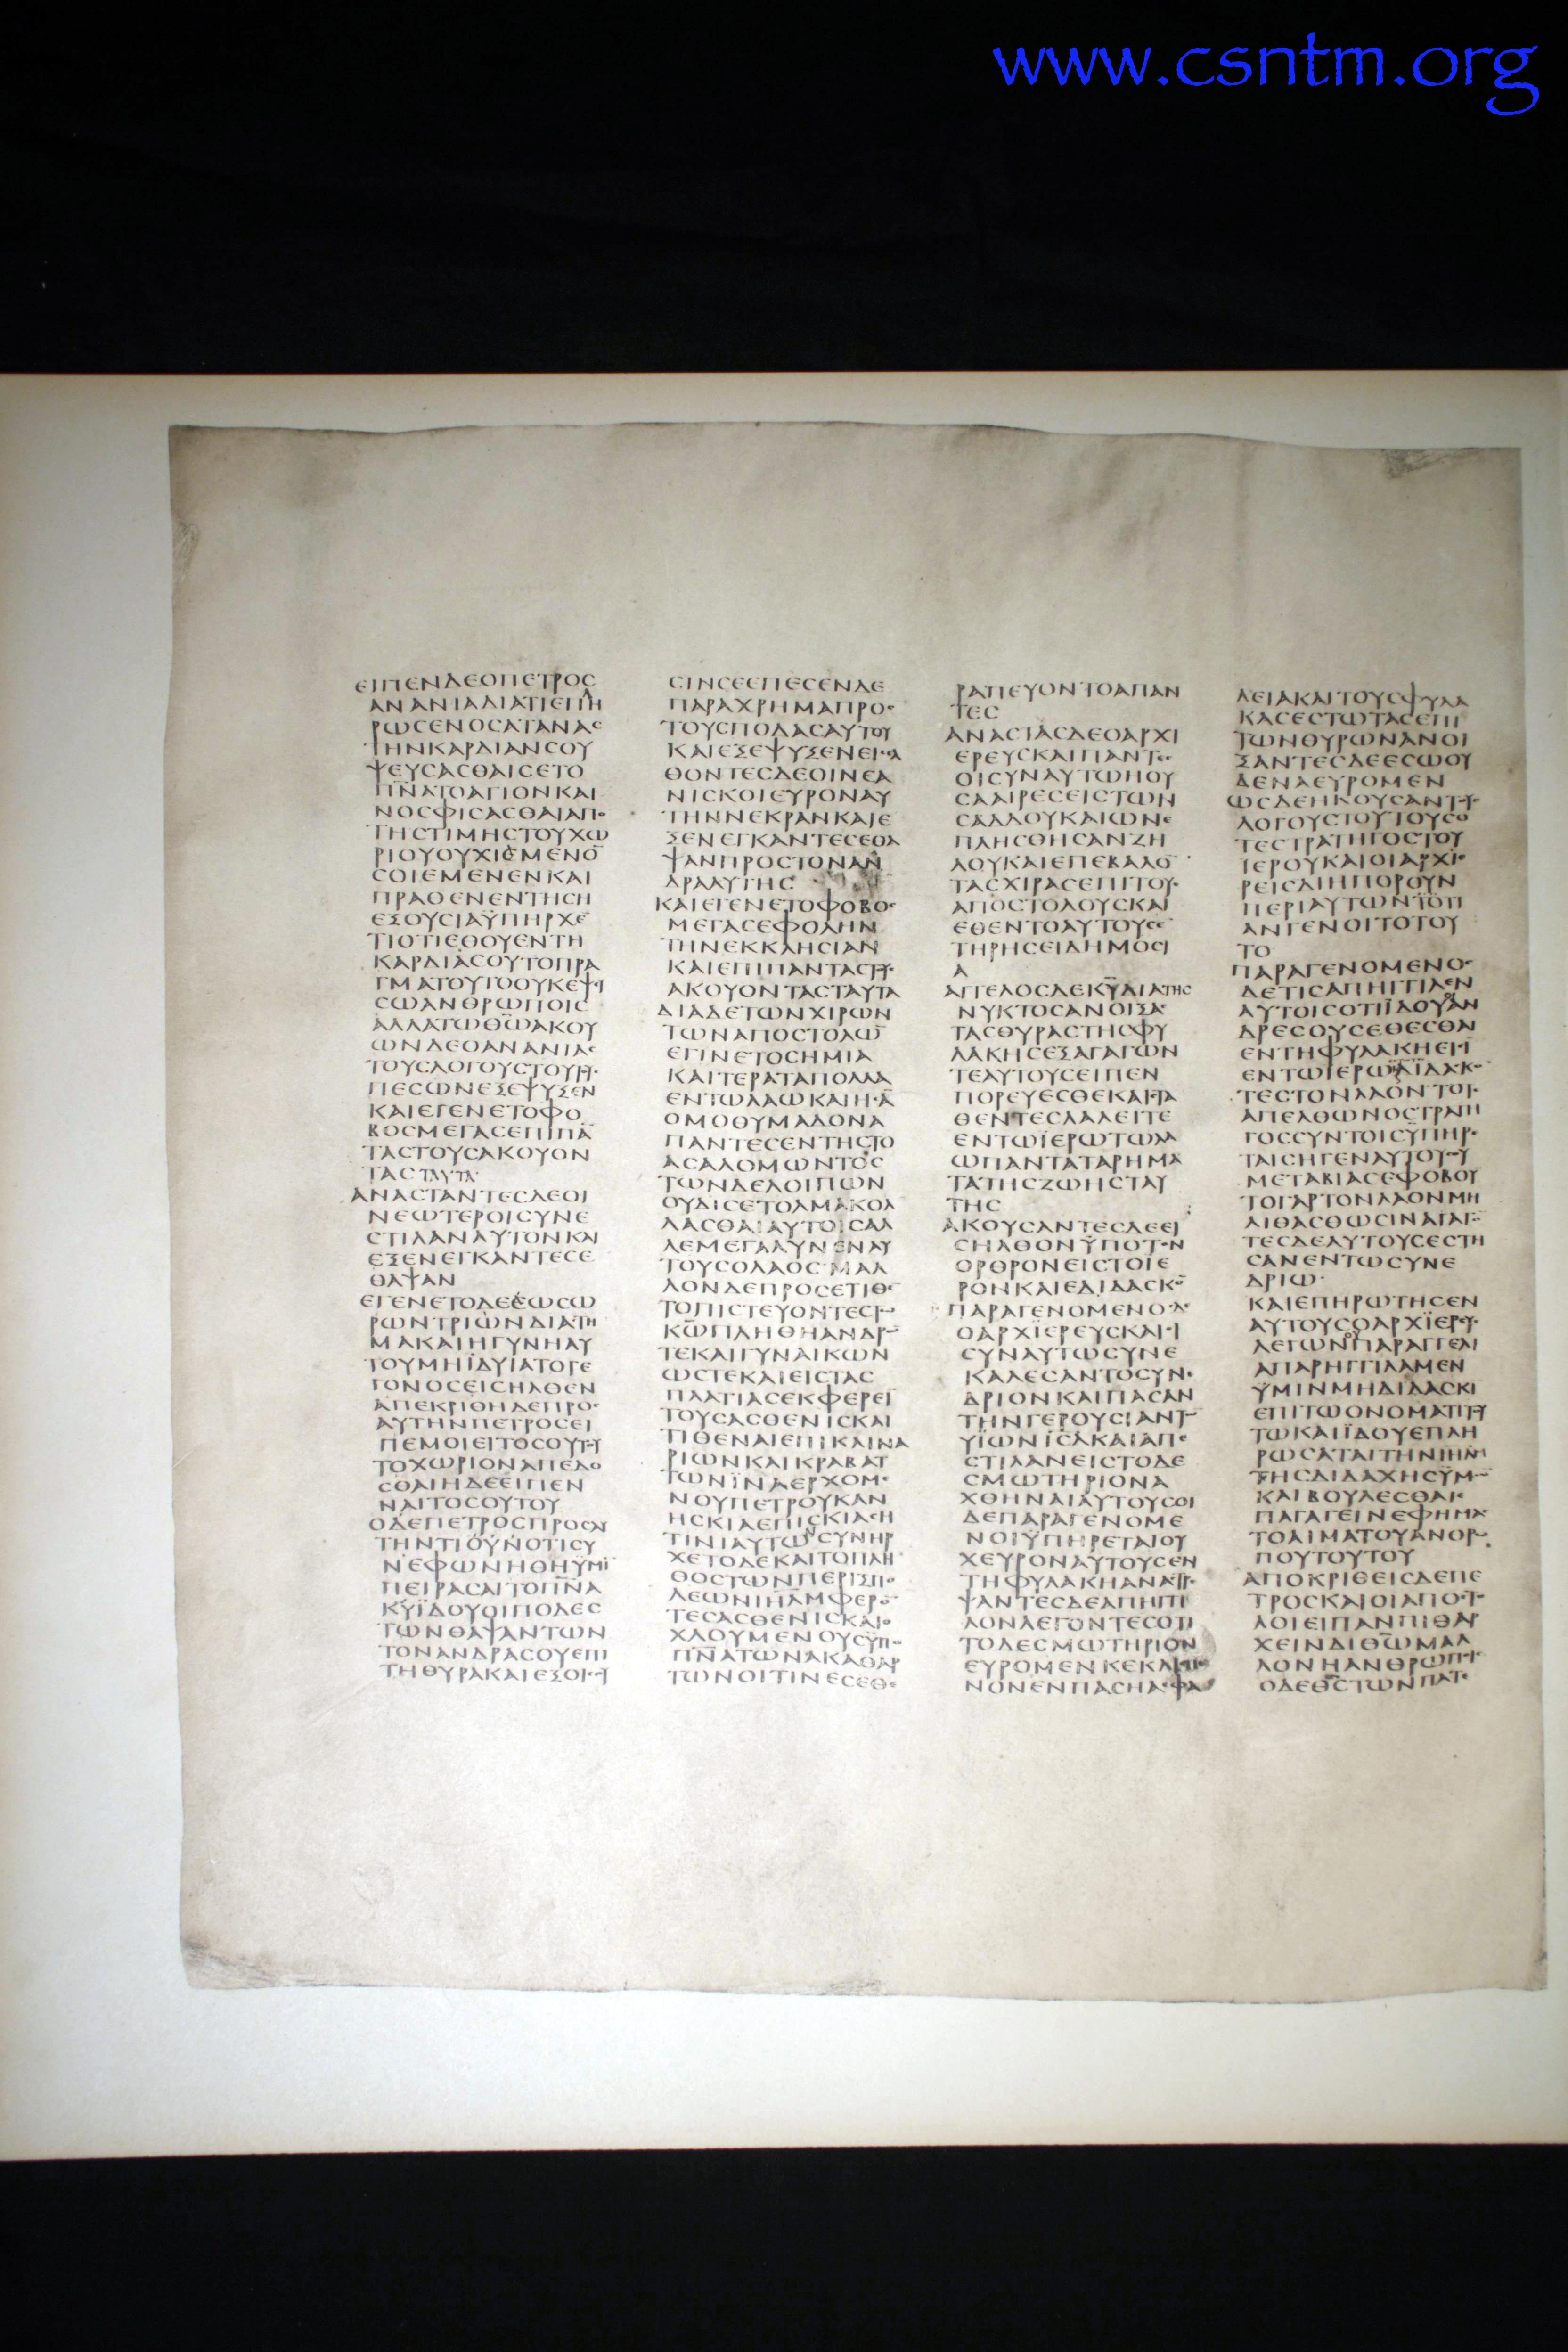 www.csntm.org
ΕΙΠΕΝΔΕΟΠΕΤΡΟϹ
ΑΝΑΝΙΑΔΙΑΤΙΕΠΗ
ΡΩϹΕΝΟϹΑΤΑΝΑϹ
ΤΗΝΚΑΡΔΙΑΝϹΟΥ
ΨΕΥϹΑϹΘΑΙϹΕΤΟ
ΠΝΑΤΟΑΓΙΟΝΚΑΙ
ΝΟϹΦΙϹΑϹΘΑΙΑΠΟ
ΤΗϹΤΙΜΗϹΤΟΥΧΩ
ΡΙΟΥΟΥΧΙϹΜΕΝΟ̅
ϹΟΙΕΜΕΝΕΝΚΑΙ
ΠΡΑΘΕΝΕΝΤΗϹΗ
ΕΞΟΥϹΙΑΫΠΗΡΧΕ̅
ΤΙΟΤΙΕΘΟΥΕΝΤΗ
ΚΑΡΔΙΑϹΟΥΤΟΠΡΑ
ΓΜΑΤΟΥΤΟΟΥΚΕΨΕΥ
ϹΩΑΝΘΡΩΠΟΙϹ
ΑΛΛΑΤΩΘΩΑΚΟΥ
ΩΝΔΕΟΑΝΑΝΙΑϹ
ΤΟΥϹΛΟΓΟΥϹΤΟΥΤΟΥϹ
ΠΕϹΩΝΕΞΕΨΥΞΕΝ
ΚΑΙΕΓΕΝΕΤΟΦΟ
ΒΟϹΜΕΓΑϹΕΠΙΠΑ̅
ΤΑϹΤΟΥϹΑΚΟΥΟΝ
ΤΑϹΤΑΥΤΑ
ΑΝΑϹΤΑΝΤΕϹΔΕΟΙ
ΝΕΩΤΕΡΟΙϹΥΝΕ
ϹΤΙΛΑΝΑΥΤΟΝΚΑΙ
ΕΞΕΝΕΓΚΑΝΤΕϹΕ
ΘΑΨΑΝ
ΕΓΕΝΕΤΟΔΕΕΩϹΩ
ΡΩΝΤΡΙΩΝΔΙΑϹΤΗ
ΜΑΚΑΙΗΓΥΝΗΑΥ
ΤΟΥΜΗΪΔΥΙΑΤΟΓΕ
ΓΟΝΟϹΕΙϹΗΛΘΕΝ
ΑΠΕΚΡΙΘΗΔΕΠΡΟϹ
ΑΥΤΗΝΠΕΤΡΟϹΕΙ
ΠΕΜΟΙΕΙΤΟϹΟΥΤΟΥ
ΤΟΧΩΡΙΟΝΑΠΕΔΟ
ϹΘΑΙΗΔΕΕΙΠΕΝ
ΝΑΙΤΟϹΟΥΤΟΥ
ΟΔΕΠΕΤΡΟϹΠΡΟϹΑΥ
ΤΗΝΤΙΟΥΝΟΤΙϹΥ
ΝΕΦΩΝΗΘΗΫΜΙ̅
ΠΕΙΡΑϹΑΙΤΟΠΝΑ
ΚΥΪΔΟΥΟΙΠΟΔΕϹ
ΤΩΝΘΑΨΑΝΤΩΝ
ΤΟΝΑΝΔΡΑϹΟΥΕΠΙ
ΤΗΘΥΡΑΚΑΙΕΞΟΙϹΟΥ
ϹΙΝϹΕΕΠΕϹΕΝΔΕ
ΠΑΡΑΧΡΗΜΑΠΡΟϹ
ΤΟΥϹΠΟΔΑϹΑΥΤΟΥ
ΚΑΙΕΞΕΨΥΞΕΝΕΙϹΕΛ
ΘΟΝΤΕϹΔΕΟΙΝΕΑ
ΝΙϹΚΟΙΕΥΡΟΝΑΥ
ΤΗΝΝΕΚΡΑΝΚΑΙΕ
ΞΕΝΕΓΚΑΝΤΕϹΕΘΑ
ΨΑΝΠΡΟϹΤΟΝΑΝ
ΔΡΑΑΥΤΗϹ
ΚΑΙΕΓΕΝΕΤΟΦΟΒΟϹ
ΜΕΓΑϹΕΦΟΛΗΝ
ΤΗΝΕΚΚΛΗϹΙΑΝ
ΚΑΙΕΠΙΠΑΝΤΑϹΤΟΥϹ
ΑΚΟΥΟΝΤΑϹΤΑΥΤΑ
ΔΙΑΔΕΤΩΝΧΙΡΩΝ
ΤΩΝΑΠΟϹΤΟΛΩ̅
ΕΓΙΝΕΤΟϹΗΜΙΑ
ΚΑΙΤΕΡΑΤΑΠΟΛΛΑ
ΕΝΤΩΛΑΩΚΑΙΗϹΑ̅
ΟΜΟΘΥΜΑΔΟΝΑ
ΠΑΝΤΕϹΕΝΤΗϹΤΟ
ΑϹΑΛΟΜΩΝΤΟϹ
ΤΩΝΔΕΛΟΙΠΩΝ
ΟΥΔΙϹΕΤΟΛΜΑΚΟΛ
ΛΑϹΘΑΙΑΥΤΟΙϹΑΛ
ΛΕΜΕΓΑΛΥΝΕΝΑΥ
ΤΟΥϹΟΛΑΟϹΜΑΛ
ΛΟΝΔΕΠΡΟϹΕΤΙΘΕ̅
ΤΟΠΙϹΤΕΥΟΝΤΕϹΤΩ
ΚΩΠΛΗΘΗΑΝΔΡΩ̅
ΤΕΚΑΙΓΥΝΑΙΚΩΝ
ΩϹΤΕΚΑΙΕΙϹΤΑϹ
ΠΛΑΤΙΑϹΕΚΦΕΡΕΙ̅
ΤΟΥϹΑϹΘΕΝΙϹΚΑΙ
ΤΙΘΕΝΑΙΕΠΙΚΛΙΝΑ
ΡΙΩΝΚΑΙΚΡΑΒΑΤ
ΤΩΝΪΝΑΕΡΧΟΜΕ
ΝΟΥΠΕΤΡΟΥΚΑΝ
ΗϹΚΙΑΕΠΙϹΚΙΑϹΗ
ΤΙΝΙΑΥΤΩΝϹΥΝΗΡ
ΧΕΤΟΔΕΚΑΙΤΟΠΛΗ
ΘΟϹΤΩΝΠΕΡΙΞΠΟ
ΛΕΩΝΙΗΛΜΦΕΡΟ̅
ΤΕϹΑϹΘΕΝΙϹΚΑΙΟ
ΧΛΟΥΜΕΝΟΥϹΫΠΟ
ΠΝΑΤΩΝΑΚΑΘΑΡ
ΤΩΝΟΙΤΙΝΕϹΕΘΕ
ΡΑΠΕΥΟΝΤΟΑΠΑΝ
ΤΕϹ
ΑΝΑϹΤΑϹΔΕΟΑΡΧΙ
ΕΡΕΥϹΚΑΙΠΑΝΤΕϹ
ΟΙϹΥΝΑΥΤΩΗΟΥ
ϹΑΑΙΡΕϹΕΙϹΤΩΝ
ϹΑΔΔΟΥΚΑΙΩΝΕ
ΠΛΗϹΘΗϹΑΝΖΗ
ΛΟΥΚΑΙΕΠΕΒΑΛΟ̅
ΤΑϹΧΙΡΑϹΕΠΙΤΟΥϹ
ΑΠΟϹΤΟΛΟΥϹΚΑΙ
ΕΘΕΝΤΟΑΥΤΟΥϹΕ̅
ΤΗΡΗϹΕΙΔΗΜΟϹΙ
Α
ΑΓΓΕΛΟϹΔΕΚΥΔΙΑΤΗϹ
ΝΥΚΤΟϹΑΝΟΙΞΑϹ
ΤΑϹΘΥΡΑϹΤΗϹΦΥ
ΛΑΚΗϹΕΞΑΓΑΓΩΝ
ΤΕΑΥΤΟΥϹΕΙΠΕΝ
ΠΟΡΕΥΕϹΘΕΚΑΙϹΤΑ
ΘΕΝΤΕϹΛΑΛΕΙΤΕ
ΕΝΤΩΪΕΡΩΤΩΛΑ
ΩΠΑΝΤΑΤΑΡΗΜΑ
ΤΑΤΗϹΖΩΗϹΤΑΥ
ΤΗϹ
ΑΚΟΥϹΑΝΤΕϹΔΕΕΙ
ϹΗΛΘΟΝΫΠΟΤΟΝ
ΟΡΘΡΟΝΕΙϹΤΟΙΕ
ΡΟΝΚΑΙΕΔΙΔΑϹΚΟ̅
ΠΑΡΑΓΕΝΟΜΕΝΟϹΔΕ
ΟΑΡΧΪΕΡΕΥϹΚΑΙΟΙ
ϹΥΝΑΥΤΩϹΥΝΕ
ΚΑΛΕϹΑΝΤΟϹΥΝΕ
ΔΡΙΟΝΚΑΙΠΑϹΑΝ
ΤΗΝΓΕΡΟΥϹΙΑΝΤΩ̅
ΥΪΩΝΙϹΛΚΑΙΑΠΕ
ϹΤΙΛΑΝΕΙϹΤΟΔΕ
ϹΜΩΤΗΡΙΟΝΑ
ΧΘΗΝΑΙΑΥΤΟΥϹΟΙ
ΔΕΠΑΡΑΓΕΝΟΜΕ
ΝΟΙΫΠΗΡΕΤΑΙΟΥ
ΧΕΥΡΟΝΑΥΤΟΥϹΕΝ
ΤΗΦΥΛΑΚΗΑΝΑϹΤΡΕ
ΨΑΝΤΕϹΔΕΑΠΗΓΓΙ
ΛΟΝΛΕΓΟΝΤΕϹΟΤΙ
ΤΟΔΕϹΜΩΤΗΡΙΟΝ
ΕΥΡΟΜΕΝΚΕΚΛΙϹΜΕ
ΝΟΝΕΝΠΑϹΗΑϹΦΑ
ΛΕΙΑΚΑΙΤΟΥϹΦΥΛΑ
ΚΑϹΕϹΤΩΤΑϹΕΠΙ
ΤΩΝΘΥΡΩΝΑΝΟΙ
ΞΑΝΤΕϹΔΕΕϹΩΟΥ
ΔΕΝΑΕΥΡΟΜΕΝ
ΩϹΔΕΗΚΟΥϹΑΝΤΟΥϹ
ΛΟΓΟΥϹΤΟΥΤΟΥϹΟ
ΤΕϹΤΡΑΤΗΓΟϹΤΟΥ
ΙΕΡΟΥΚΑΙΟΙΑΡΧΙΕ
ΡΕΙϹΔΙΗΠΟΡΟΥΝ
ΠΕΡΙΑΥΤΩΝΤΟΤΙ
ΑΝΓΕΝΟΙΤΟΤΟΥ
ΤΟ
ΠΑΡΑΓΕΝΟΜΕΝΟϹ
ΔΕΤΙϹΑΠΗΓΓΙΛΕΝ
ΑΥΤΟΙϹΟΤΙΪΔΟΥΟΙΑΝ
ΔΡΕϹΟΥϹΕΘΕϹΘΑΙ
ΕΝΤΗΦΥΛΑΚΗΕΙϹΙ
ΕΝΤΩΙΕΡΩΔΙΔΑϹΚΟ̅
ΤΕϹΤΟΝΛΑΟΝΤΟΤΕ
ΑΠΕΛΘΩΝΟϹΤΡΑΤΗ
ΓΟϹϹΥΝΤΟΙϹΫΠΗΡΕ
ΤΑΙϹΗΓΕΝΑΥΤΟΥϹΟΥ
ΜΕΤΑΒΙΑϹΕΦΟΒΟΥ̅
ΤΟΓΑΡΤΟΝΛΑΟΝΜΗ
ΛΙΘΑϹΘΩϹΙΝΑΓΑΓΟ̅
ΤΕϹΔΕΑΥΤΟΥϹΕϹΤΗ
ϹΑΝΕΝΤΩϹΥΝΕ
ΔΡΙΩ
ΚΑΙΕΠΗΡΩΤΗϹΕΝ
ΑΥΤΟΥϹΟΑΡΧΪΕΡΕΥϹ
ΛΕΓΩΝΟΥΠΑΡΑΓΓΕΛΙ
ΑΠΑΡΗΓΓΙΛΑΜΕΝ
ΫΜΙΝΜΗΔΙΔΑϹΚΙ̅
ΕΠΙΤΩΟΝΟΜΑΤΙΤΟΥ
ΤΩΚΑΙΪΔΟΥΕΠΛΗ
ΡΩϹΑΤΑΙΤΗΝΙΗΛΜ
ΤΗϹΔΙΔΑΧΗϹΫΜΩ̅
ΚΑΙΒΟΥΛΕϹΘΑΙΕ
ΠΑΓΑΓΕΙΝΕΦΗΜΑϹ
ΤΟΑΙΜΑΤΟΥΑΝΘΡΩ
ΠΟΥΤΟΥΤΟΥ
ΑΠΟΚΡΙΘΕΙϹΔΕΠΕ
ΤΡΟϹΚΑΙΟΙΑΠΟϹΤΟ
ΛΟΙΕΙΠΑΝΠΙΘΑΡ
ΧΕΙΝΔΙΘΩΜΑΛ
ΛΟΝΗΑΝΘΡΩΠΟΙϹ
ΟΔΕΘϹΤΩΝΠΑΤΕ